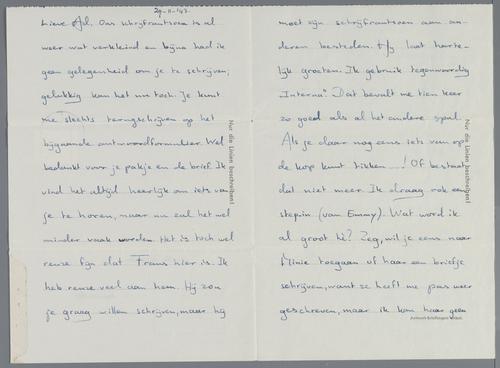 29-11-'43.
Lieve Ad. Ons schrijfrantsoen is al
weer wat verkleind en bijna had ik
geen gelegenheid om je te schrijven;
gelukkig kan het nu toch. Je kunt
me slechts terugschrijven op het
bijgaande antwoordformulier. Wel
bedankt voor je pakje en de brief. Ik
vind het altijd heerlijk om iets van
je te horen, maar nu zal het wel
minder vaak worden. Het is toch wel
reuze fijn dat Frans hier is. Ik
heb reuze veel aan hem. Hij zou
je graag willen schrijven, maar hij
Nur die Linien beschreiben!
moet zijn schrijfrantsoen aan an-
deren besteden. Hij laat harte-
lijk groeten. Ik gebruik tegenwoordig
Interna. Dat bevalt me tien keer
zo goed als al het andere spul.
Als je daar nog eens iets van op
de kop kunt tikken —! Of bestaat
dat niet meer. Ik draag ook een
stepin (van Emmy). Wat word ik
al groot hè? Zeg, wil je eens naar
Minie toegaan of haar een briefje
schrijven, want ze heeft me pas weer
geschreven, maar ik kan haar geen
Nur die Linien beschreiben!